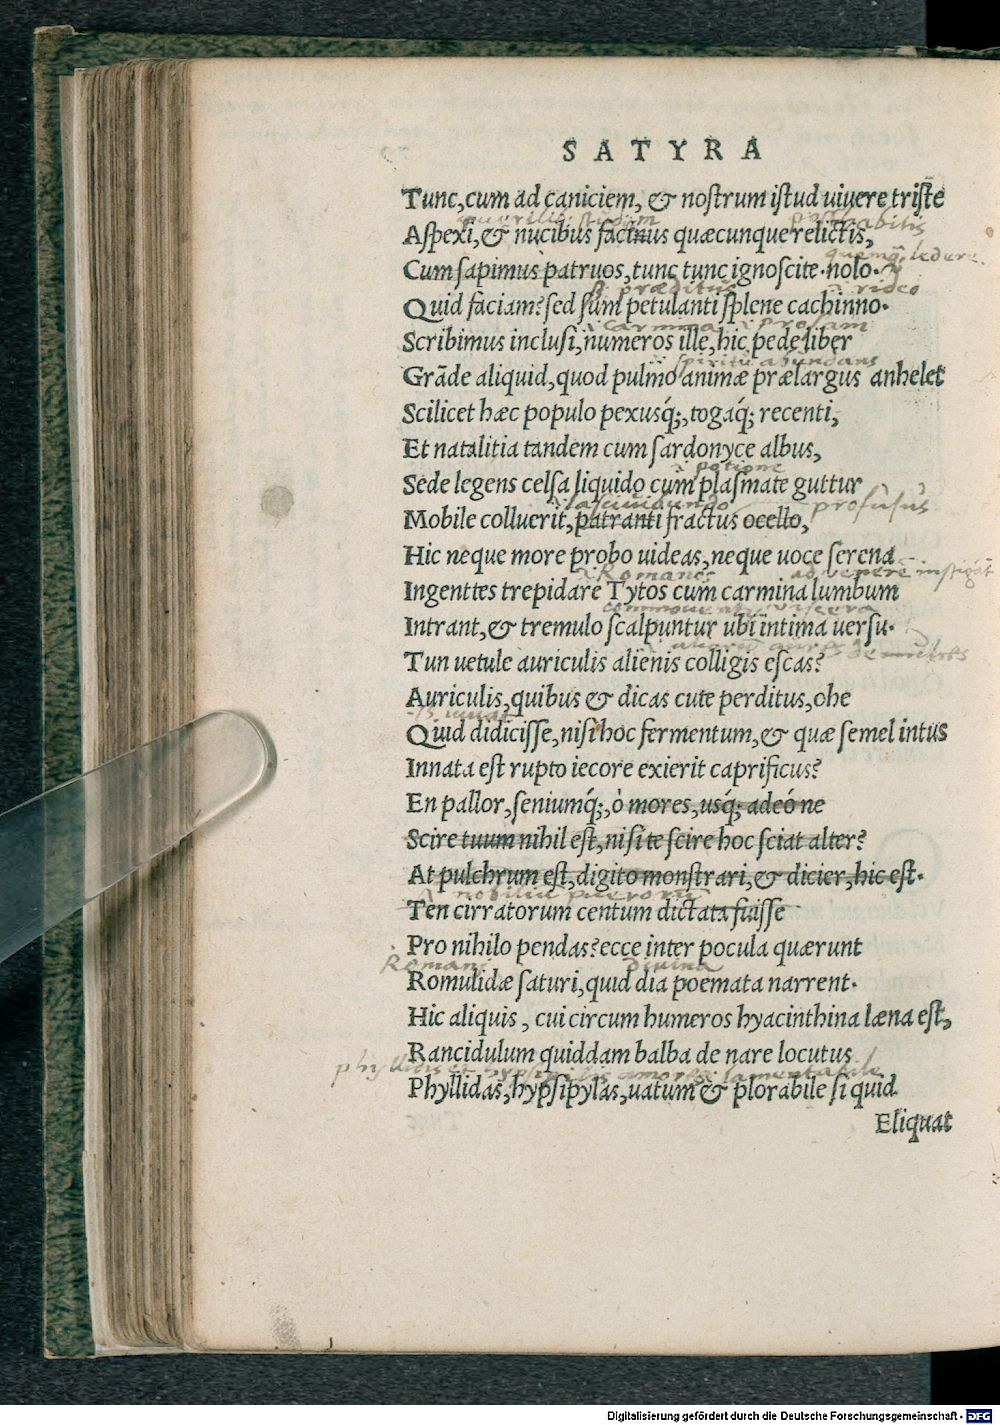 SATYRA
Tunc, cum ad caniciem, & nostrum istud uiuere triste
puerilib. studijs posthabitis
Aspexi, & nucibus facimus quæcunque relictis,
quemq̃ ledere
Cum sapimus patruos, tunc tunc ignoscite. nolo.
præditus rideo
Quid faciam? sed sum petulanti splene cachinno.
carmina prosam
Scribimus inclusi, numeros ille, hic pede liber
spiritu abundans
Grãde aliquid, quod pulmo animæ prælargus anhelet
Scilicet hæc populo pexusq́;, togaq́; recenti,
Et natalitia tandem cum sardonyce albus,
potione
Sede legens celsa liquido cum plasmate guttur
lasciuibundo profusus
Mobile colluerit, patranti fractus ocello,
Hic neque more probo uideas, neque uoce serena
Romanos ad venerẽ instigãt
Ingenttes trepidare Tytos cum carmina lumbum
commouentur viscera
Intrant, & tremulo scalpuntur ubi intima uersu.
aures demulces
Tun uetule auriculis alienis colligis escas?
Auriculis, quibus & dicas cute perditus, ohe
iuuat
Quid didicisse, nisi hoc fermentum, & quæ semel intus
Innata est rupto iecore exierit caprificus?
En pallor, seniumq́;, ò mores, usq́; adeó ne
Scire tuum nihil est, nisi te scire hoc sciat alter?
At pulchrum est, digito monstrari, & dicier, hic est.
nobiliũ puerorũ
Ten cirratorum centum dictata fuisse
Pro nihilo pendas? ecce inter pocula quærunt
Romani divina
Romulidæ saturi, quid dia poemata narrent.
Hic aliquis, cui circum humeros hyacinthina læna est,
Rancidulum quiddam balba de nare locutus
phyllidis et hypsipilis amores lamentabile
Phyllidas, hypsipylas, uatum & plorabile si quid
Eliquat
Digitalisierung gefördert durch die Deutsche Forschungsgemeinschaft - DFG